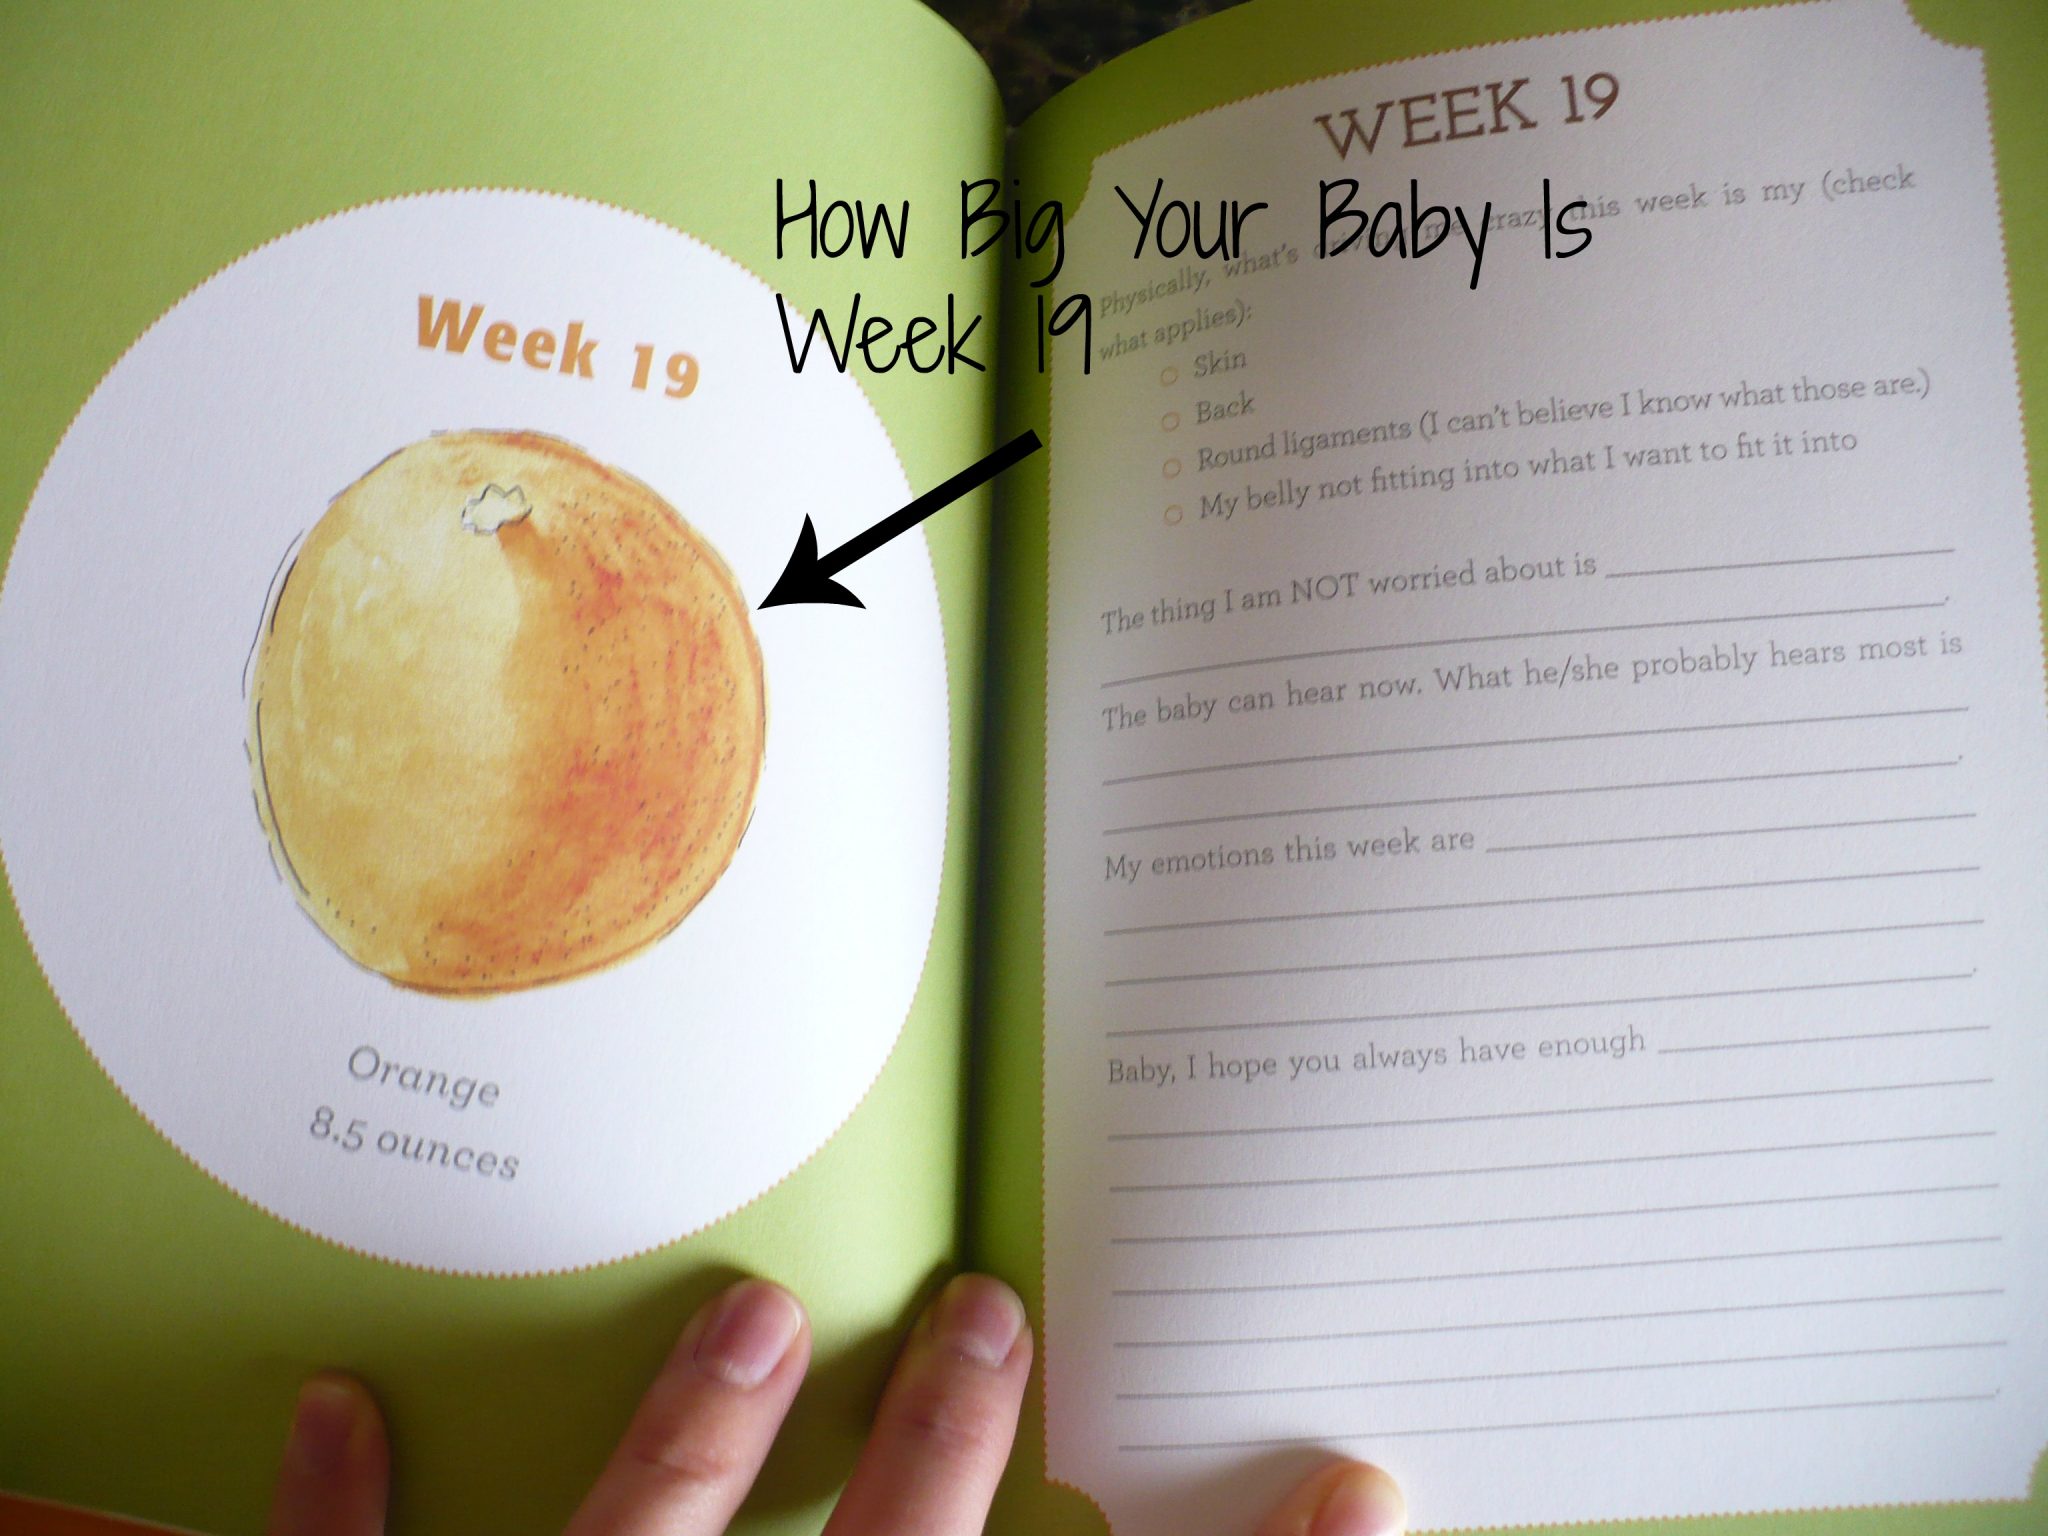 Week 19
Orange
8.5 ounces
How Big Your Baby Is
Week 19
WEEK 19
Physically, what's driving me crazy this week is my (check
what applies):
Skin
Back
Round ligaments (I can't believe I know what those are.)
My belly not fitting into what I want to fit it into
The thing I am NOT worried about is
.
The baby can hear now. What he/she probably hears most is
.
My emotions this week are
.
Baby, I hope you always have enough
.